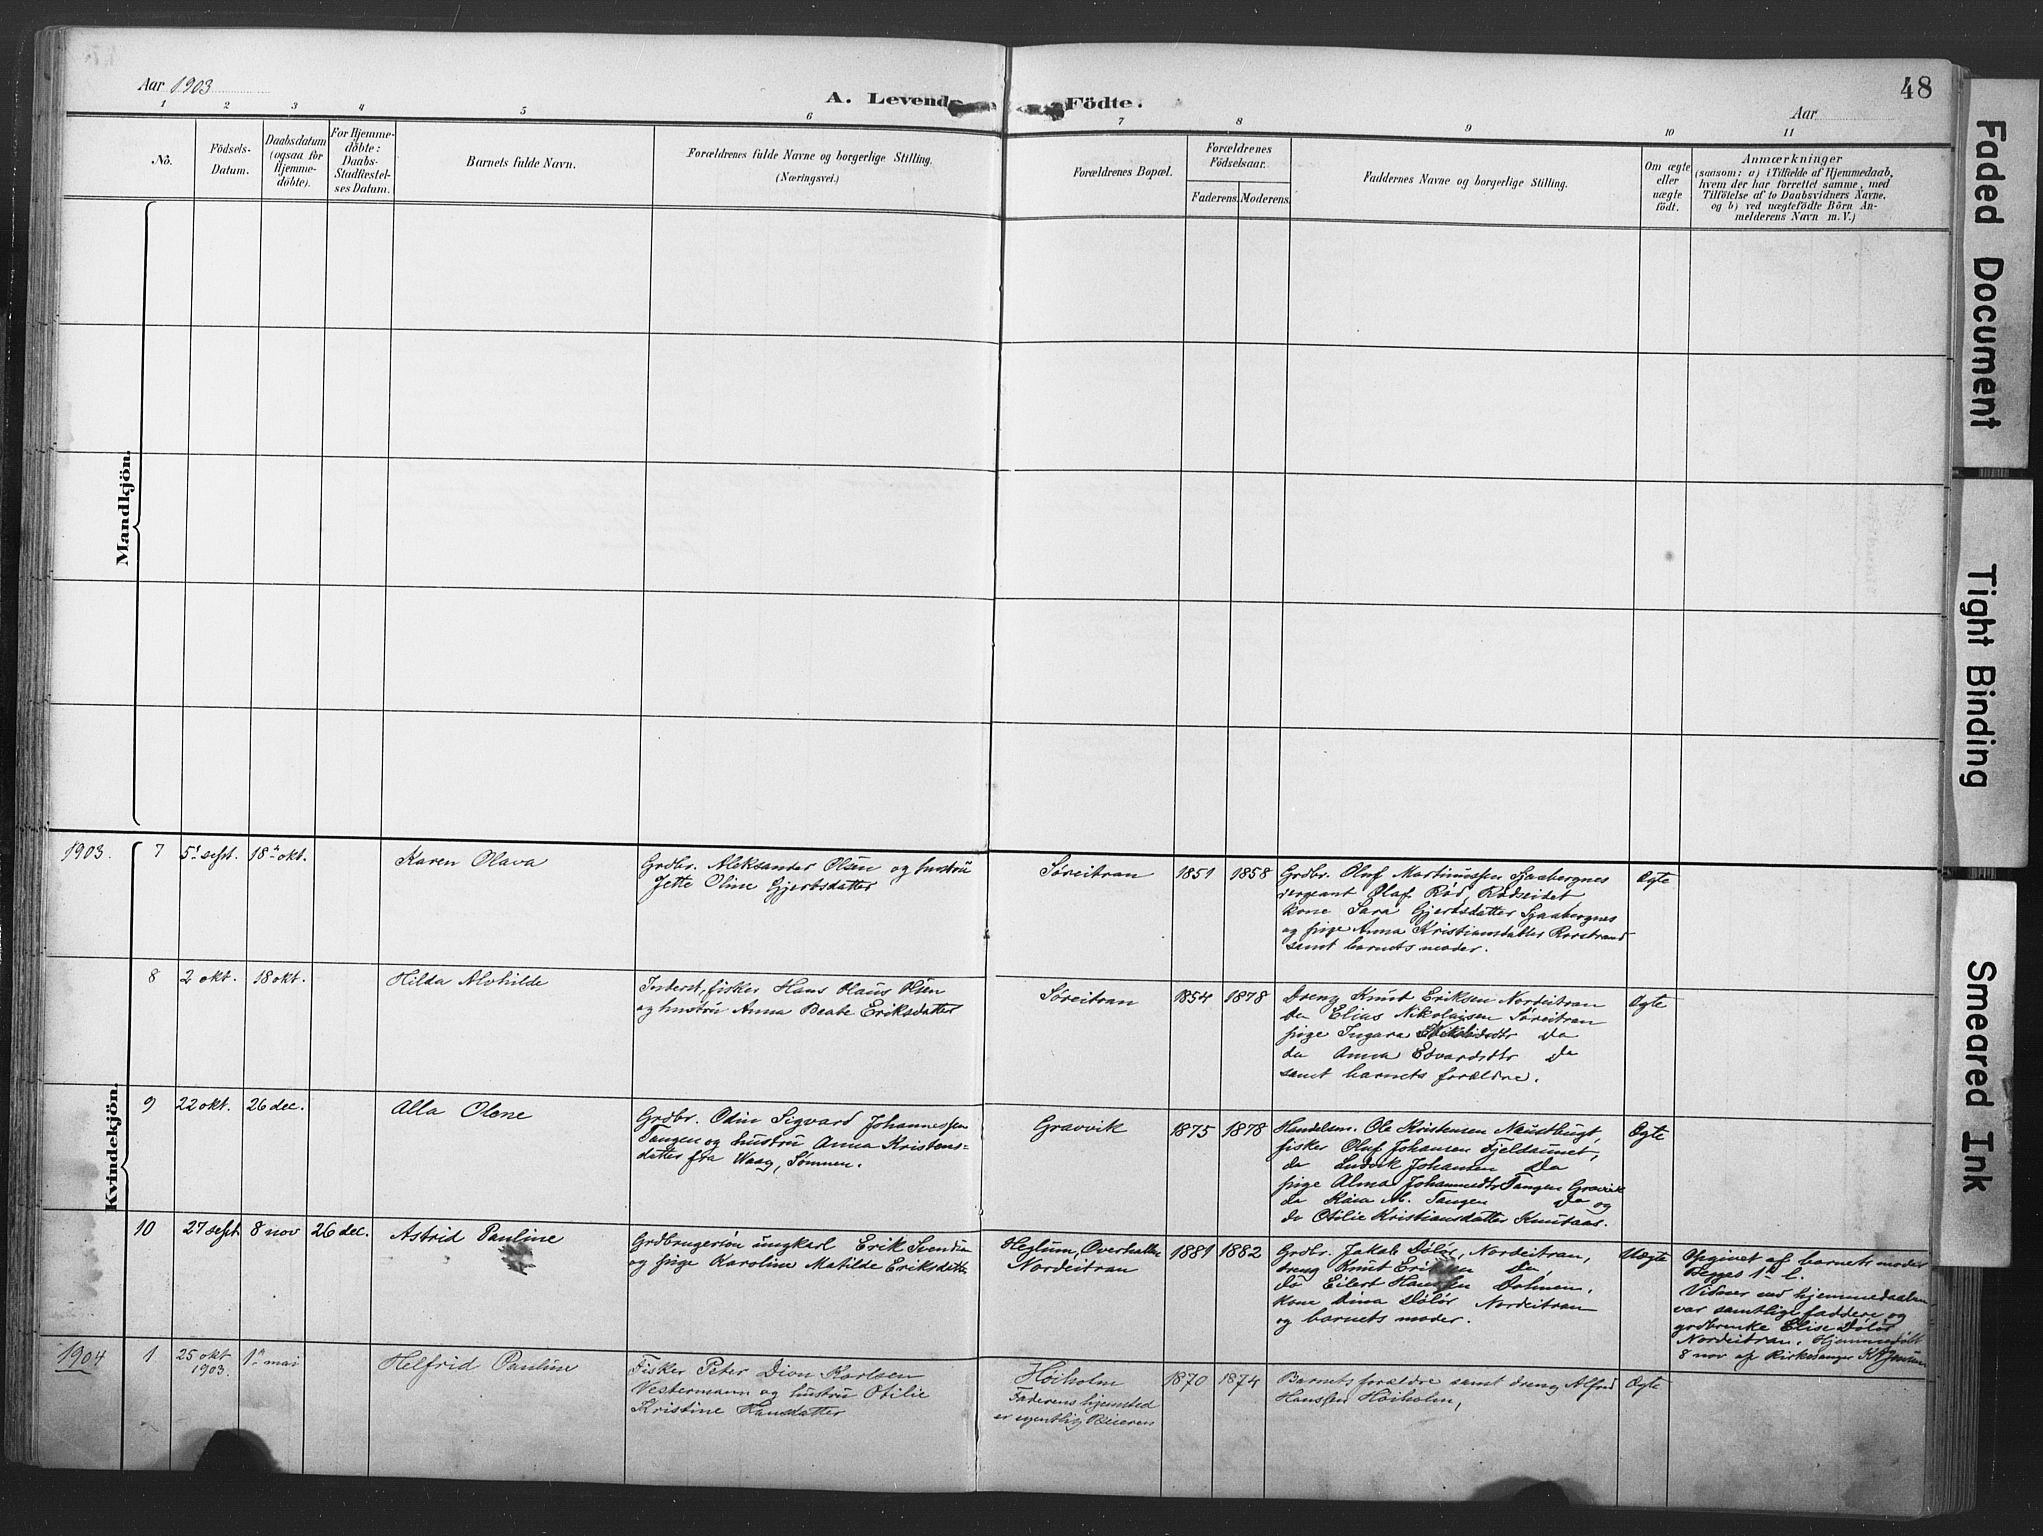 Aar 1903
A. Levende Födte.
Aar
48
1 2 3 4 5 6 7 8 9 10 11
No.
Födsels-
Datum.
Daabsdatum
(ogsaa for
Hjemme-
döbte).
For Hjemme-
döbte:
Daabs-
Stadfæstel-
ses Datum.
Barnets fulde Navn.
Forældrenes fulde Navne og borgerlige Stilling.
(Næringsvei.)
Forældrenes Bopæl.
Forældrenes
Födselsaar.
Faderens. Moderens.
Faddernes Navne og borgerlige Stilling.
Om ægte
eller
uægte
födt.
Anmærkninger
(saasom: a) i Tilfælde af Hjemmedaab,
hvem der har forrettet samme, med
Tilföielse af to Daabsvidners Navne.
og b) ved uægtefödte Börn An-
melderens Navn m. V.)
Mandkjön.
Kvindekjön.
1903. 7 5' sept. 18 okt.
Karen Olava
Grdbr. Aleksander Olsen og hustru
Jette Oline Gjertsdatter
Søreitran
1851 1858
Grdbr. Oluf Martinussen Sjaabergnes
sergeant Olaf Rød, Rødseidet
kone Sara Gjertsdatter Sjaabergnes
og pige Anna Kristiansdatter
samt barnets moder.
Ægte
8 2 okt. 18 okt.
Hilda Alvhilde
Inderst, fisker Hans Olaus Olsen
og hustru Anna Beate Eriksdatter
Søreitran
1854 1878
Dreng Knut Eriksen Nordeitran
Do Elias Nikolaisen Søreitran
pige Ingara Do
do Anna Edvardsdtr Do
samt barnets forældre.
Ægte
9 22 okt. 26 dec.
Alla Olene
Grdbr. Odin Sigvard Johannessen
Tangen og hustru Anna Kristens-
datter fra Waag, Sømnen.
Gravvik
1875 1878
Handelsm. Ole Kristensen Naustbugt,
fisker Oluf Johansen Fjeldaunet,
do Ludvik Johansen Do
pige Alma Johannesdtr Tangen Gravvik
do Kaia M. Tangen Do og
do Otilie Kristiansdatter Knutaas.
Ægte
10 27 sept 8 nov 26 dec.
Astrid Pauline
Grdbrugersøn ungkarl Erik Svendsen
og pige Karoline Matilde Eriksdatter
Heglum, Overhallen
Nordeitran
1881 1882
Grdbr. Jakob Dölör, Nordeitran,
dreng Knut Eriksen Do,
Do Eilert Hanssen Dolmen,
kone Dina Dölör Nordeitran
og barnets moder.
Uægte
Opgivet af barnets moder
Begges 1ste l.
Vidner ved hjemmedaaben
var samtlige faddere og
grdbrenke Elise Dölör
Nordeitran. Hjemmedöbt
8 nov af kirkesanger
1904 1 25 okt
1903. 1ste mai
Helfrid Pauline
Fisker Peter Dion Karlsen
Vestermann og hustru Otilie
Kristine Hansdatter
Høiholm
Faderens hjemsted
er egentlig Beieren
1870 1874
Barnets forældre samt dreng Alfred
Hanssen Høiholm,
Ægte
Faded Document
Tight Binding
Smeared Ink